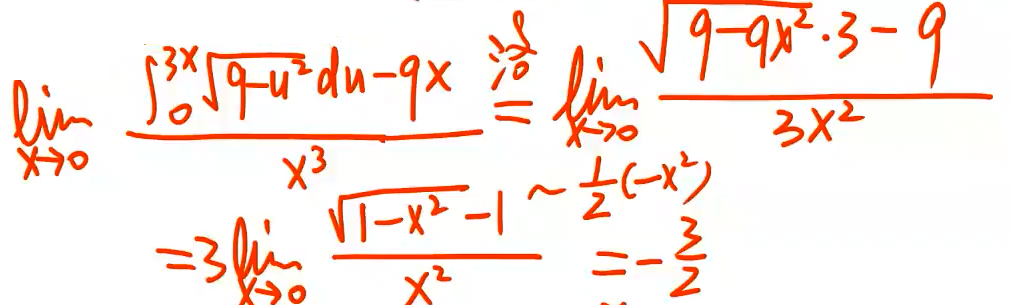 lim x→0 (∫₀^{3x} √(9-u²) du - 9x) / x³ = lim x→0 (√(9-9x²)·3 - 9) / 3x²
= 3 lim x→0 (√(1-x²) - 1) / x² ~ 1/2 (-x²) = -3/2